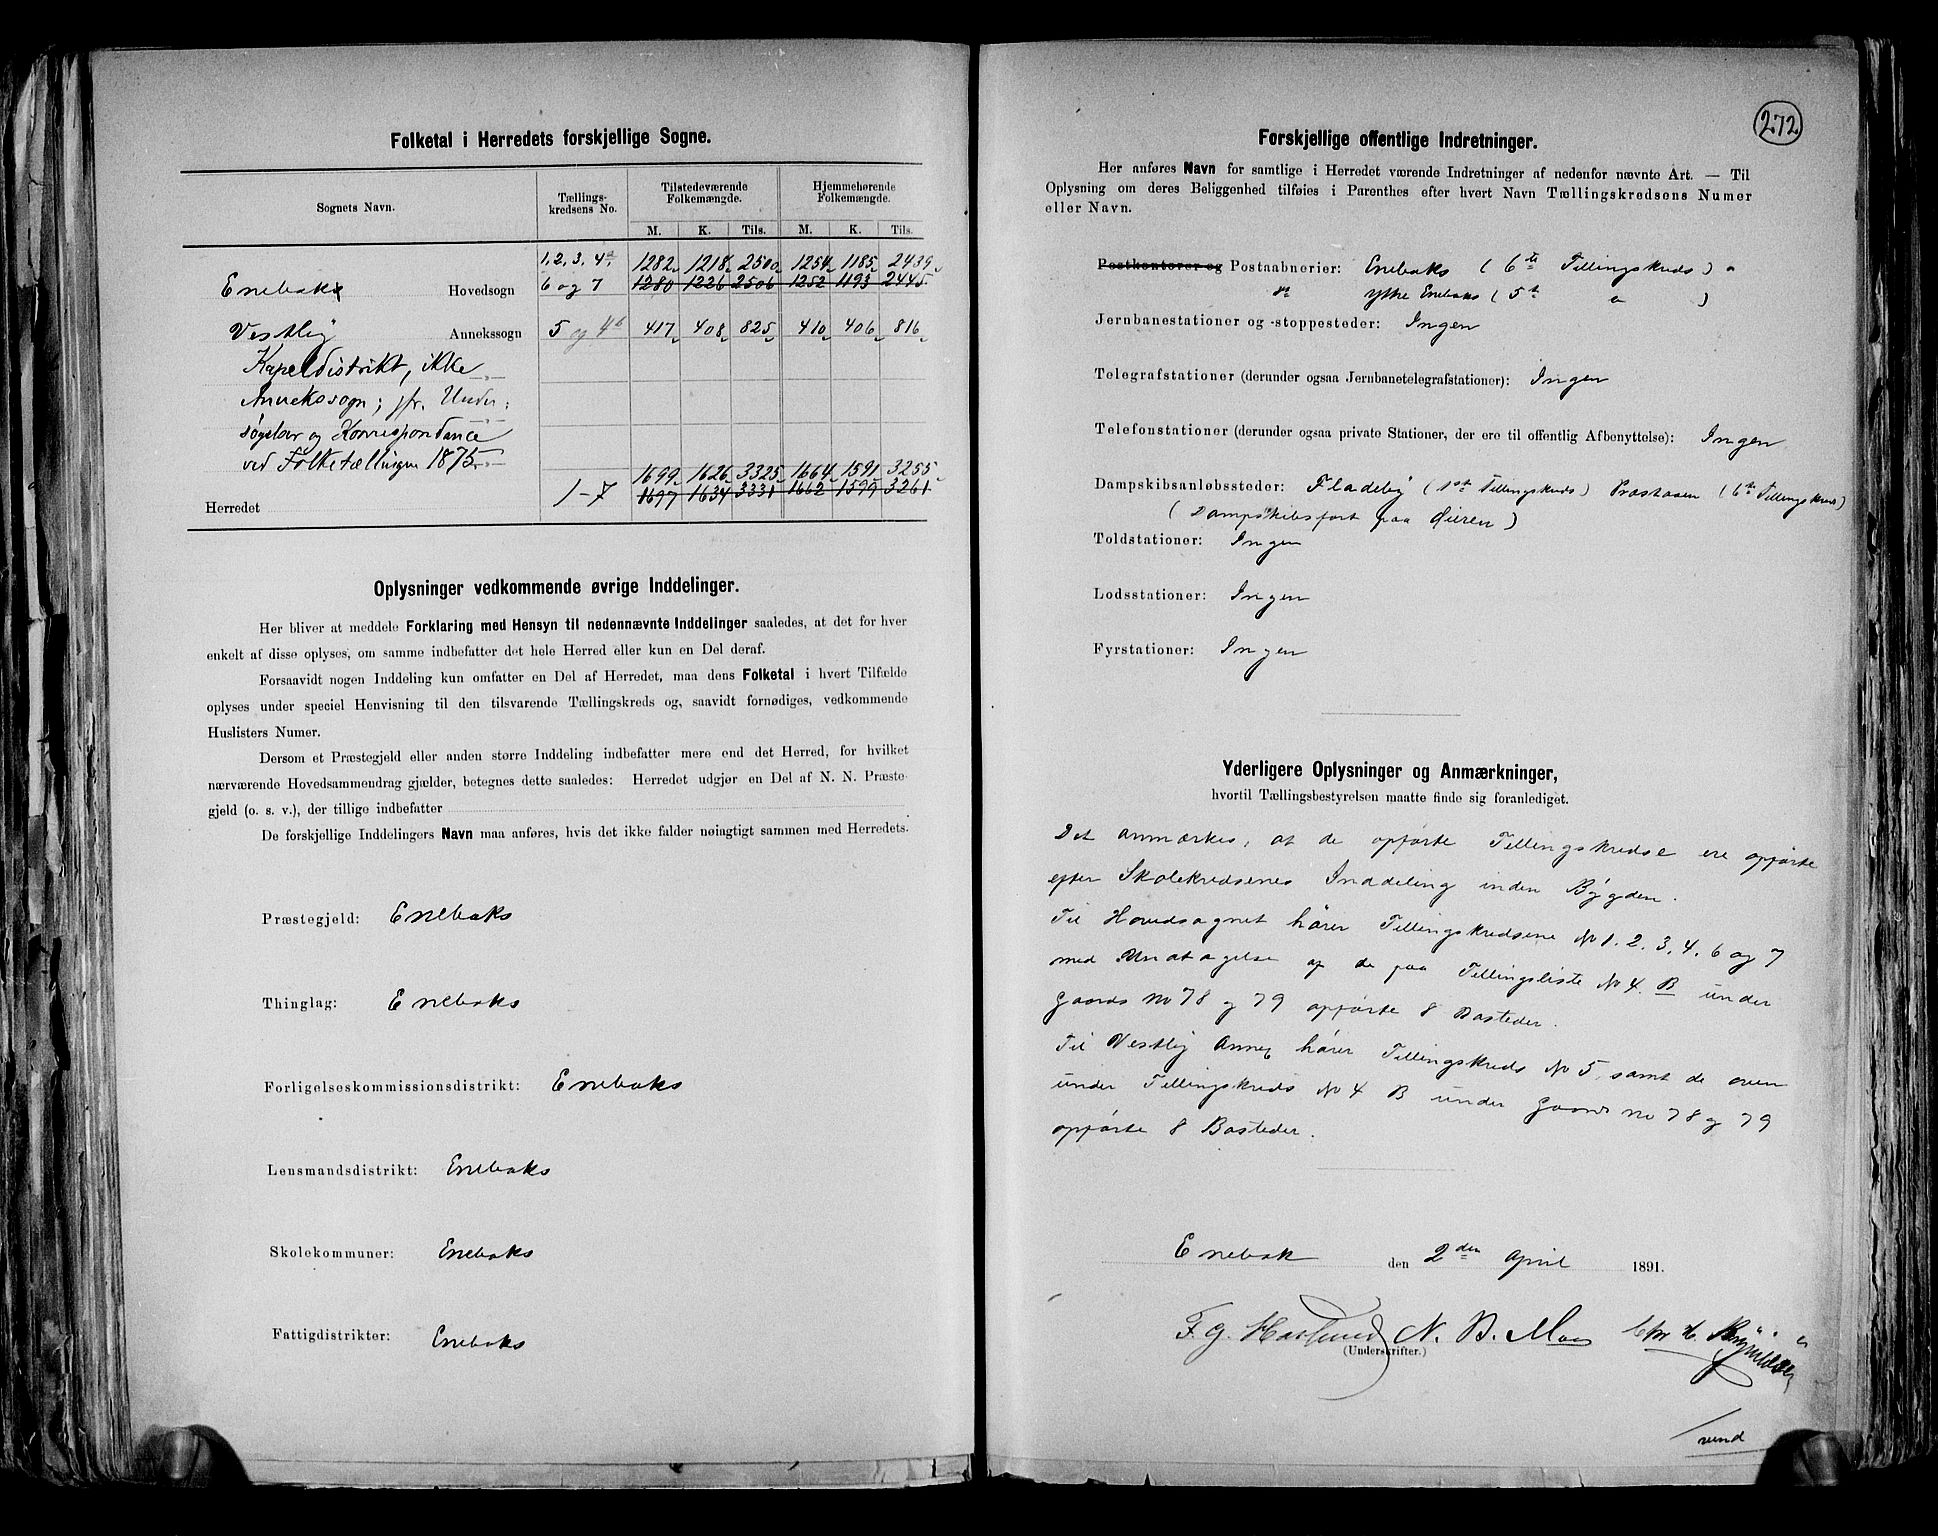 Folketal i Herredets forskjellige Sogne.
Sognets Navn. Tællings-kredsens No. Tilstedeværende Folkemængde. Hjemmehørende Folkemængde.
M. K. Tils. M. K. Tils.
1, 2, 3, 4a, 1282 1218 2500 1254 1185 2439
Enebak Hovedsogn 6 og 7 1280 1226 2506 1252 1193 2445
Vestby Annekssogn 5 og 4b 417 408 825 410 406 816
Kapeldistrikt, ikke
Annekssogn; jfr. Under:
søgelser og Korrespondance
ved Folketællingen 1875
1699 1626 3325 1664 1591 3255
Herredet 1-7 1697 1634 3331 1662 1599 3261
Oplysninger vedkommende øvrige Inddelinger.
Her bliver at meddele Forklaring med Hensyn til nedennævnte Inddelinger saaledes, at det for hver
enkelt af disse oplyses, om samme indbefatter det hele Herred eller kun en Del deraf.
Forsaavidt nogen Inddeling kun omfatter en Del af Herredet, maa dens Folketal i hvert Tilfælde
oplyses under speciel Henvisning til den tilsvarende Tællingskreds og, saavidt fornødiges, vedkommende
Huslisters Numer.
Dersom et Præstegjeld eller anden større Inddeling indbefatter mere end det Herred, for hvilket
nærværende Hovedsammendrag gjælder, betegnes dette saaledes: Herredet udgjør en Del af N. N. Præste-
gjeld (o. s. v.), der tillige indbefatter
De forskjellige Inddelingers Navn maa anføres, hvis det ikke falder nøiagtigt sammen med Herredets.
Præstegjeld: Enebaks
Thinglag: Enebaks
Forligelseskommissionsdistrikt: Enebaks
Lensmandsdistrikt: Enebaks
Skolekommuner: Enebaks
Fattigdistrikter: Enebaks
272
Forskjellige offentlige Indretninger.
Her anføres Navn for samtlige i Herredet værende Indretninger af nedenfor nævnte Art. — Til
Oplysning om deres Beliggenhed tilføies i Parenthes efter hvert Navn Tællingskredsens Numer
eller Navn.
Postkontorer og Postaabnerier: Enebaks (6te Tellingskreds)
Ytre Enebaks (5te " )
Jernbanestationer og -stoppesteder: Ingen
Telegrafstationer (derunder ogsaa Jernbanetelegrafstationer): Ingen
Telefonstationer (derunder ogsaa private Stationer, der ere til offentlig Afbenyttelse): Ingen
Dampskibsanløbssteder: Fladeby (1ste Tellingskreds) Præstaaen (6te Tellingskreds)
(Dampskibsfart paa Øieren)
Toldstationer: Ingen
Lodsstationer: Ingen
Fyrstationer: Ingen
Yderligere Oplysninger og Anmærkninger,
hvortil Tællingsbestyrelsen maatte finde sig foranlediget.
Det anmærkes, at de opførte Tellingskredse ere opførte
efter Skolekredsenes Inddeling inden Bygden.
Til Hovedsognet hører Tellingskredsene No 1. 2. 3. 4. 6 og 7
med Undtagelse af de paa Tellingsliste No 4. B under
Gaards No 78 og 79 opførte 8 Bosteder.
Til Vestby Annex hører Tellingskreds No 5, samt de oven
under Tellingskreds No 4 B under Gaards No 78 og 79
opførte 8 Bosteder.
Enebak den 2den April 1891.
F. G. Haslund N. B. Moe Chr. H.
(Underskrifter.)
vend